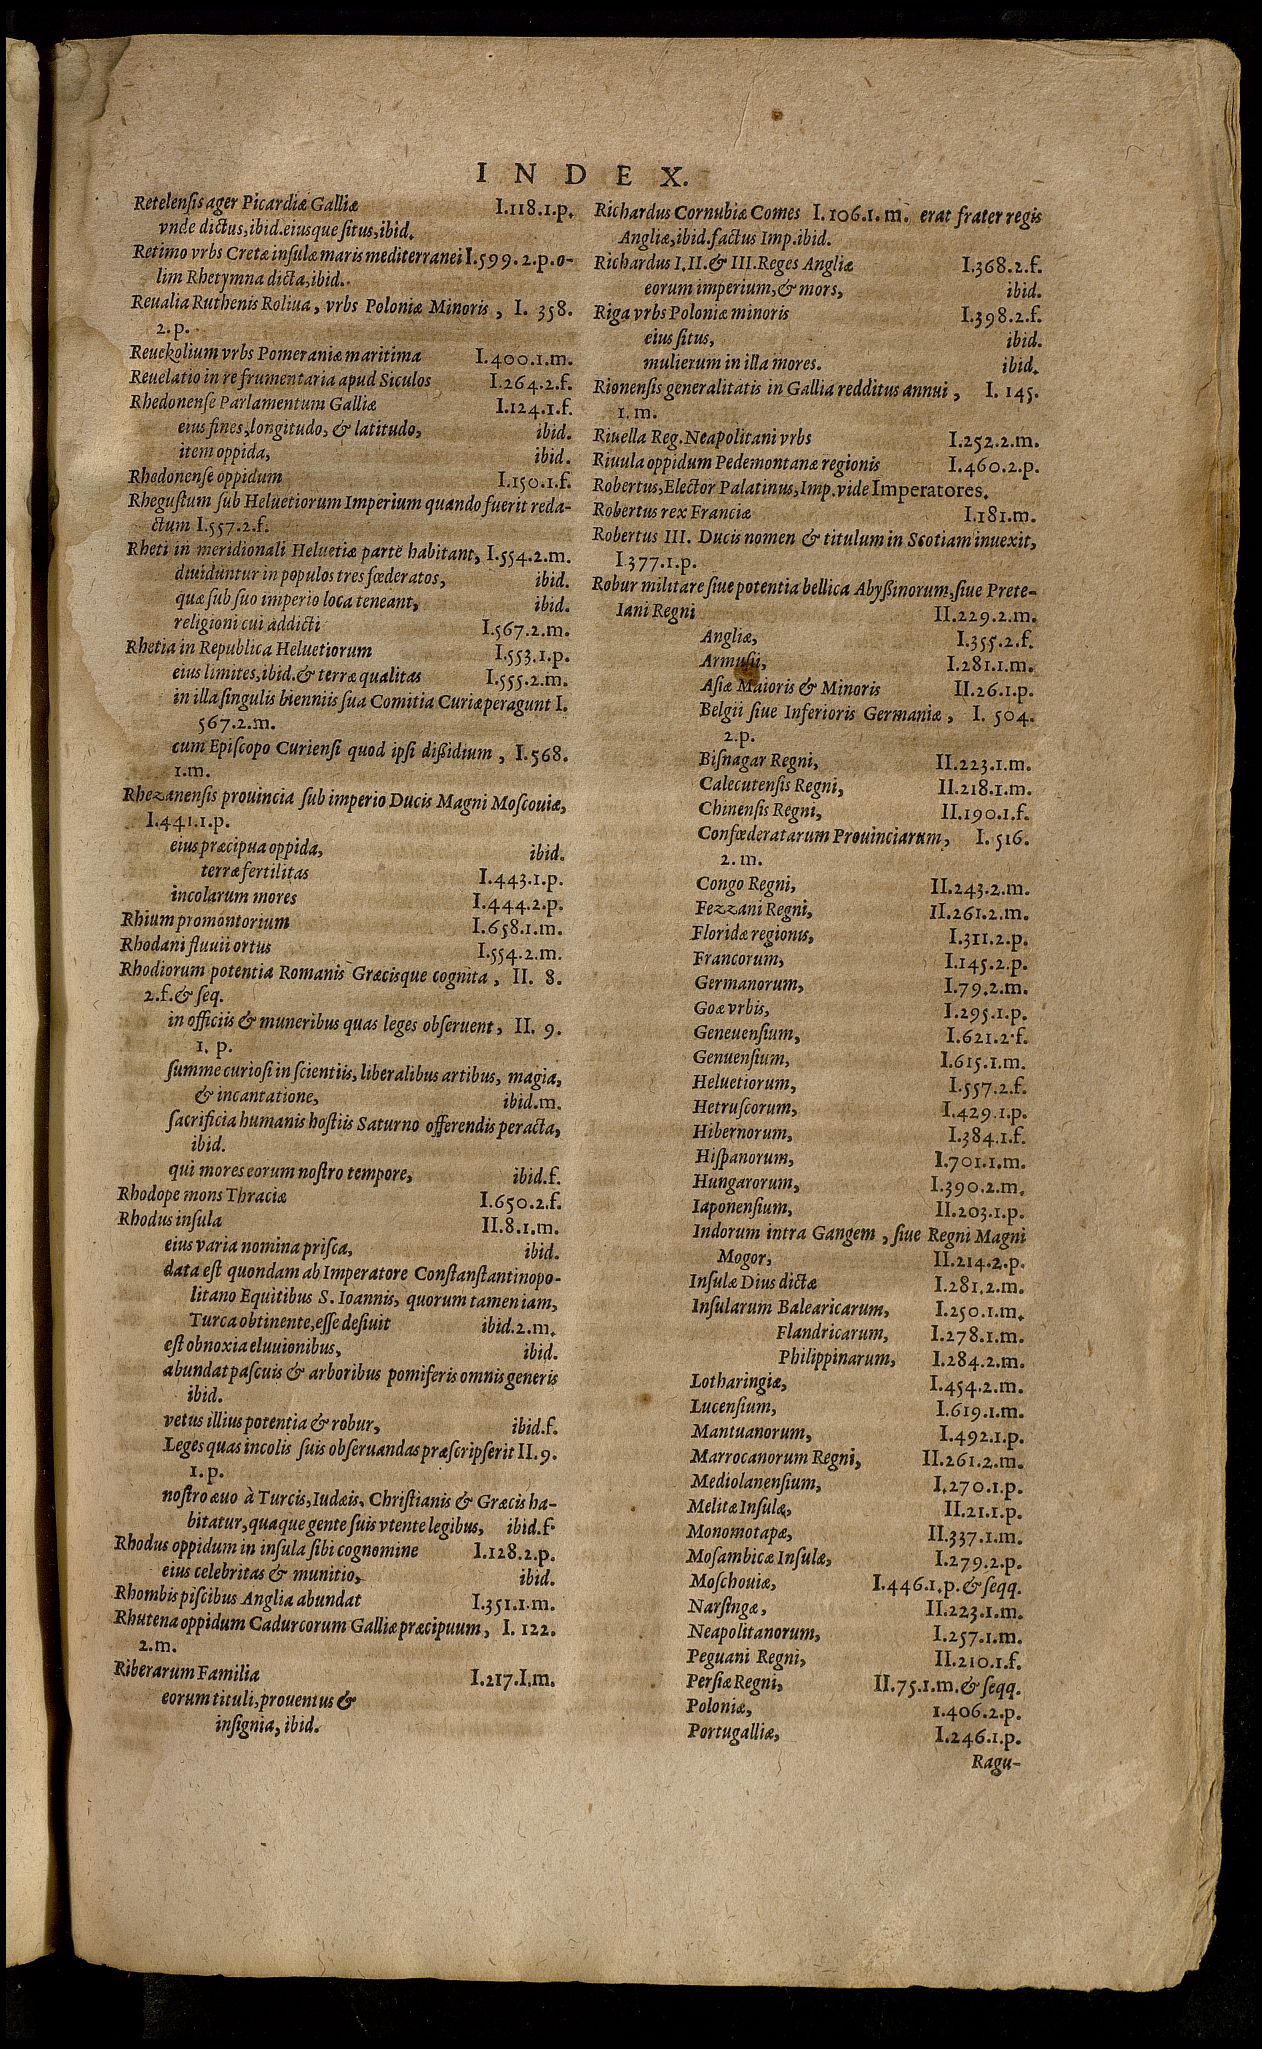 INDEX.
Retelensis ager Picardiæ Galliæ I.118.1.p.
vnde dictus, ibid. eiusque situs, ibid.
Retimo vrbs Cretæ insulæ maris mediterranei I.599.2.p.o-
lim Rhetymna dicta, ibid.
Reualia Ruthenis Roliua, vrbs Poloniæ Minoris, I. 358.
2.p.
Reuekolium vrbs Pomeraniæ maritima I.400.1.m.
Reuelatio in re frumentaria apud Siculos I.264.2.f.
Rhedonense Parlamentum Galliæ I.124.1.f.
eius fines, longitudo, & latitudo, ibid.
item oppida, ibid.
Rhedonense oppidum I.150.1.f.
Rhegustum sub Heluetiorum Imperium quando fuerit reda-
ctum I.557.2.f.
Rheti in meridionali Heluetiæ parte habitant, I.554.2.m.
diuiduntur in populos tres fœderatos, ibid.
quæ sub suo imperio loca teneant, ibid.
religioni cui addicti I.567.2.m.
Rhetia in Republica Heluetiorum I.553.1.p.
eius limites, ibid. & terræ qualitas I.555.2.m.
in illa singulis bienniis sua Comitia Curiæ peragunt I.
567.2.m.
cum Episcopo Curiensi quod ipsi dißidium, I.568.
1.m.
Rhezanensis prouincia sub imperio Ducis Magni Moscouiæ,
I.441.1.p.
eius præcipua oppida, ibid.
terræ fertilitas I.443.1.p.
incolarum mores I.444.2.p.
Rhium promontorium I.658.1.m.
Rhodani fluuii ortus I.554.2.m.
Rhodiorum potentia Romanis Græcisque cognita, II. 8.
2.f. & seq.
in officiis & muneribus quas leges obseruent, II. 9.
1. p.
summe curiosi in scientiis, liberalibus artibus, magia,
& incantatione, ibid.m.
sacrificia humanis hostiis Saturno offerendis peracta,
ibid.
qui mores eorum nostro tempore, ibid.f.
Rhodope mons Thraciæ I.650.2.f.
Rhodus insula II.8.1.m.
eius varia nomina prisca, ibid.
data est quondam ab Imperatore Constanstantinopo-
litano Equitibus S. Ioannis, quorum tamen iam,
Turca obtinente, esse desiuit ibid.2.m.
est obnoxia eluuionibus, ibid.
abundat pascuis & arboribus pomiferis omnis generis
ibid.
vetus illius potentia & robur, ibid.f.
Leges quas incolis suis obseruandas præscripserit II.9.
1.p.
nostro æuo à Turcis, Iudæis, Christianis & Græcis ha-
bitatur, quaque gente suis vtente legibus, ibid.f.
Rhodus oppidum in insula sibi cognomine I.128.2.p.
eius celebritas & munitio, ibid.
Rhombis piscibus Anglia abundat I.351.1.m.
Rhutena oppidum Cadurcorum Galliæ præcipuum, I. 122.
2.m.
Riberarum Familia I.217.I.m.
eorum tituli, prouentus &
insignia, ibid.
Richardus Cornubiæ Comes I.106.1.m. erat frater regis
Angliæ, ibid. factus Imp. ibid.
Richardus I.II. & III. Reges Angliæ I.368.2.f.
eorum imperium, & mors, ibid.
Riga vrbs Poloniæ minoris I.398.2.f.
eius situs, ibid.
mulierum in illa mores. ibid.
Rionensis generalitatis in Gallia redditus annui, I. 145.
1. m.
Riuella Reg. Neapolitani vrbs I.252.2.m.
Riuula oppidum Pedemontanæ regionis I.460.2.p.
Robertus, Elector Palatinus, Imp. vide Imperatores.
Robertus rex Franciæ I.181.m.
Robertus III. Ducis nomen & titulum in Scotiam inuexit,
I.377.1.p.
Robur militare siue potentia bellica Abyßinorum, siue Prete-
Iani Regni II.229.2.m.
Angliæ, I.355.2.f.
Armusii, I.281.1.m.
Asiæ Maioris & Minoris II.26.1.p.
Belgii siue Inferioris Germaniæ, I. 504.
2.p.
Bisnagar Regni, II.223.1.m.
Calecutensis Regni, II.218.1.m.
Chinensis Regni, II.190.1.f.
Confœderatarum Prouinciarum, I. 516.
2. m.
Congo Regni, II.243.2.m.
Fezzani Regni, II.261.2.m.
Floridæ regionis, I.311.2.p.
Francorum, I.145.2.p.
Germanorum, I.79.2.m.
Goæ vrbis, I.295.1.p.
Geneuensium, I.621.2.f.
Genuensium, I.615.1.m.
Heluetiorum, I.557.2.f.
Hetruscorum, I.429.1.p.
Hibernorum, I.384.1.f.
Hispanorum, I.701.1.m.
Hungarorum, I.390.2.m.
Iaponensium, II.203.1.p.
Indorum intra Gangem, siue Regni Magni
Mogor, II.214.2.p.
Insulæ Dius dictæ I.281.2.m.
Insularum Balearicarum, I.250.1.m.
Flandricarum, I.278.1.m.
Philippinarum, I.284.2.m.
Lotharingiæ, I.454.2.m.
Lucensium, I.619.1.m.
Mantuanorum, I.492.1.p.
Marrocanorum Regni, II.261.2.m.
Mediolanensium, I.270.1.p.
Melitæ Insulæ, II.21.1.p.
Monomotapæ, II.337.1.m.
Mosambicæ Insulæ, I.279.2.p.
Moschouiæ, I.446.1.p. & seqq.
Narsingæ, II.223.1.m.
Neapolitanorum, I.257.1.m.
Peguani Regni, II.210.1.f.
Persiæ Regni, II.75.1.m. & seqq.
Poloniæ, 1.406.2.p.
Portugalliæ, I.246.1.p.
Ragu-